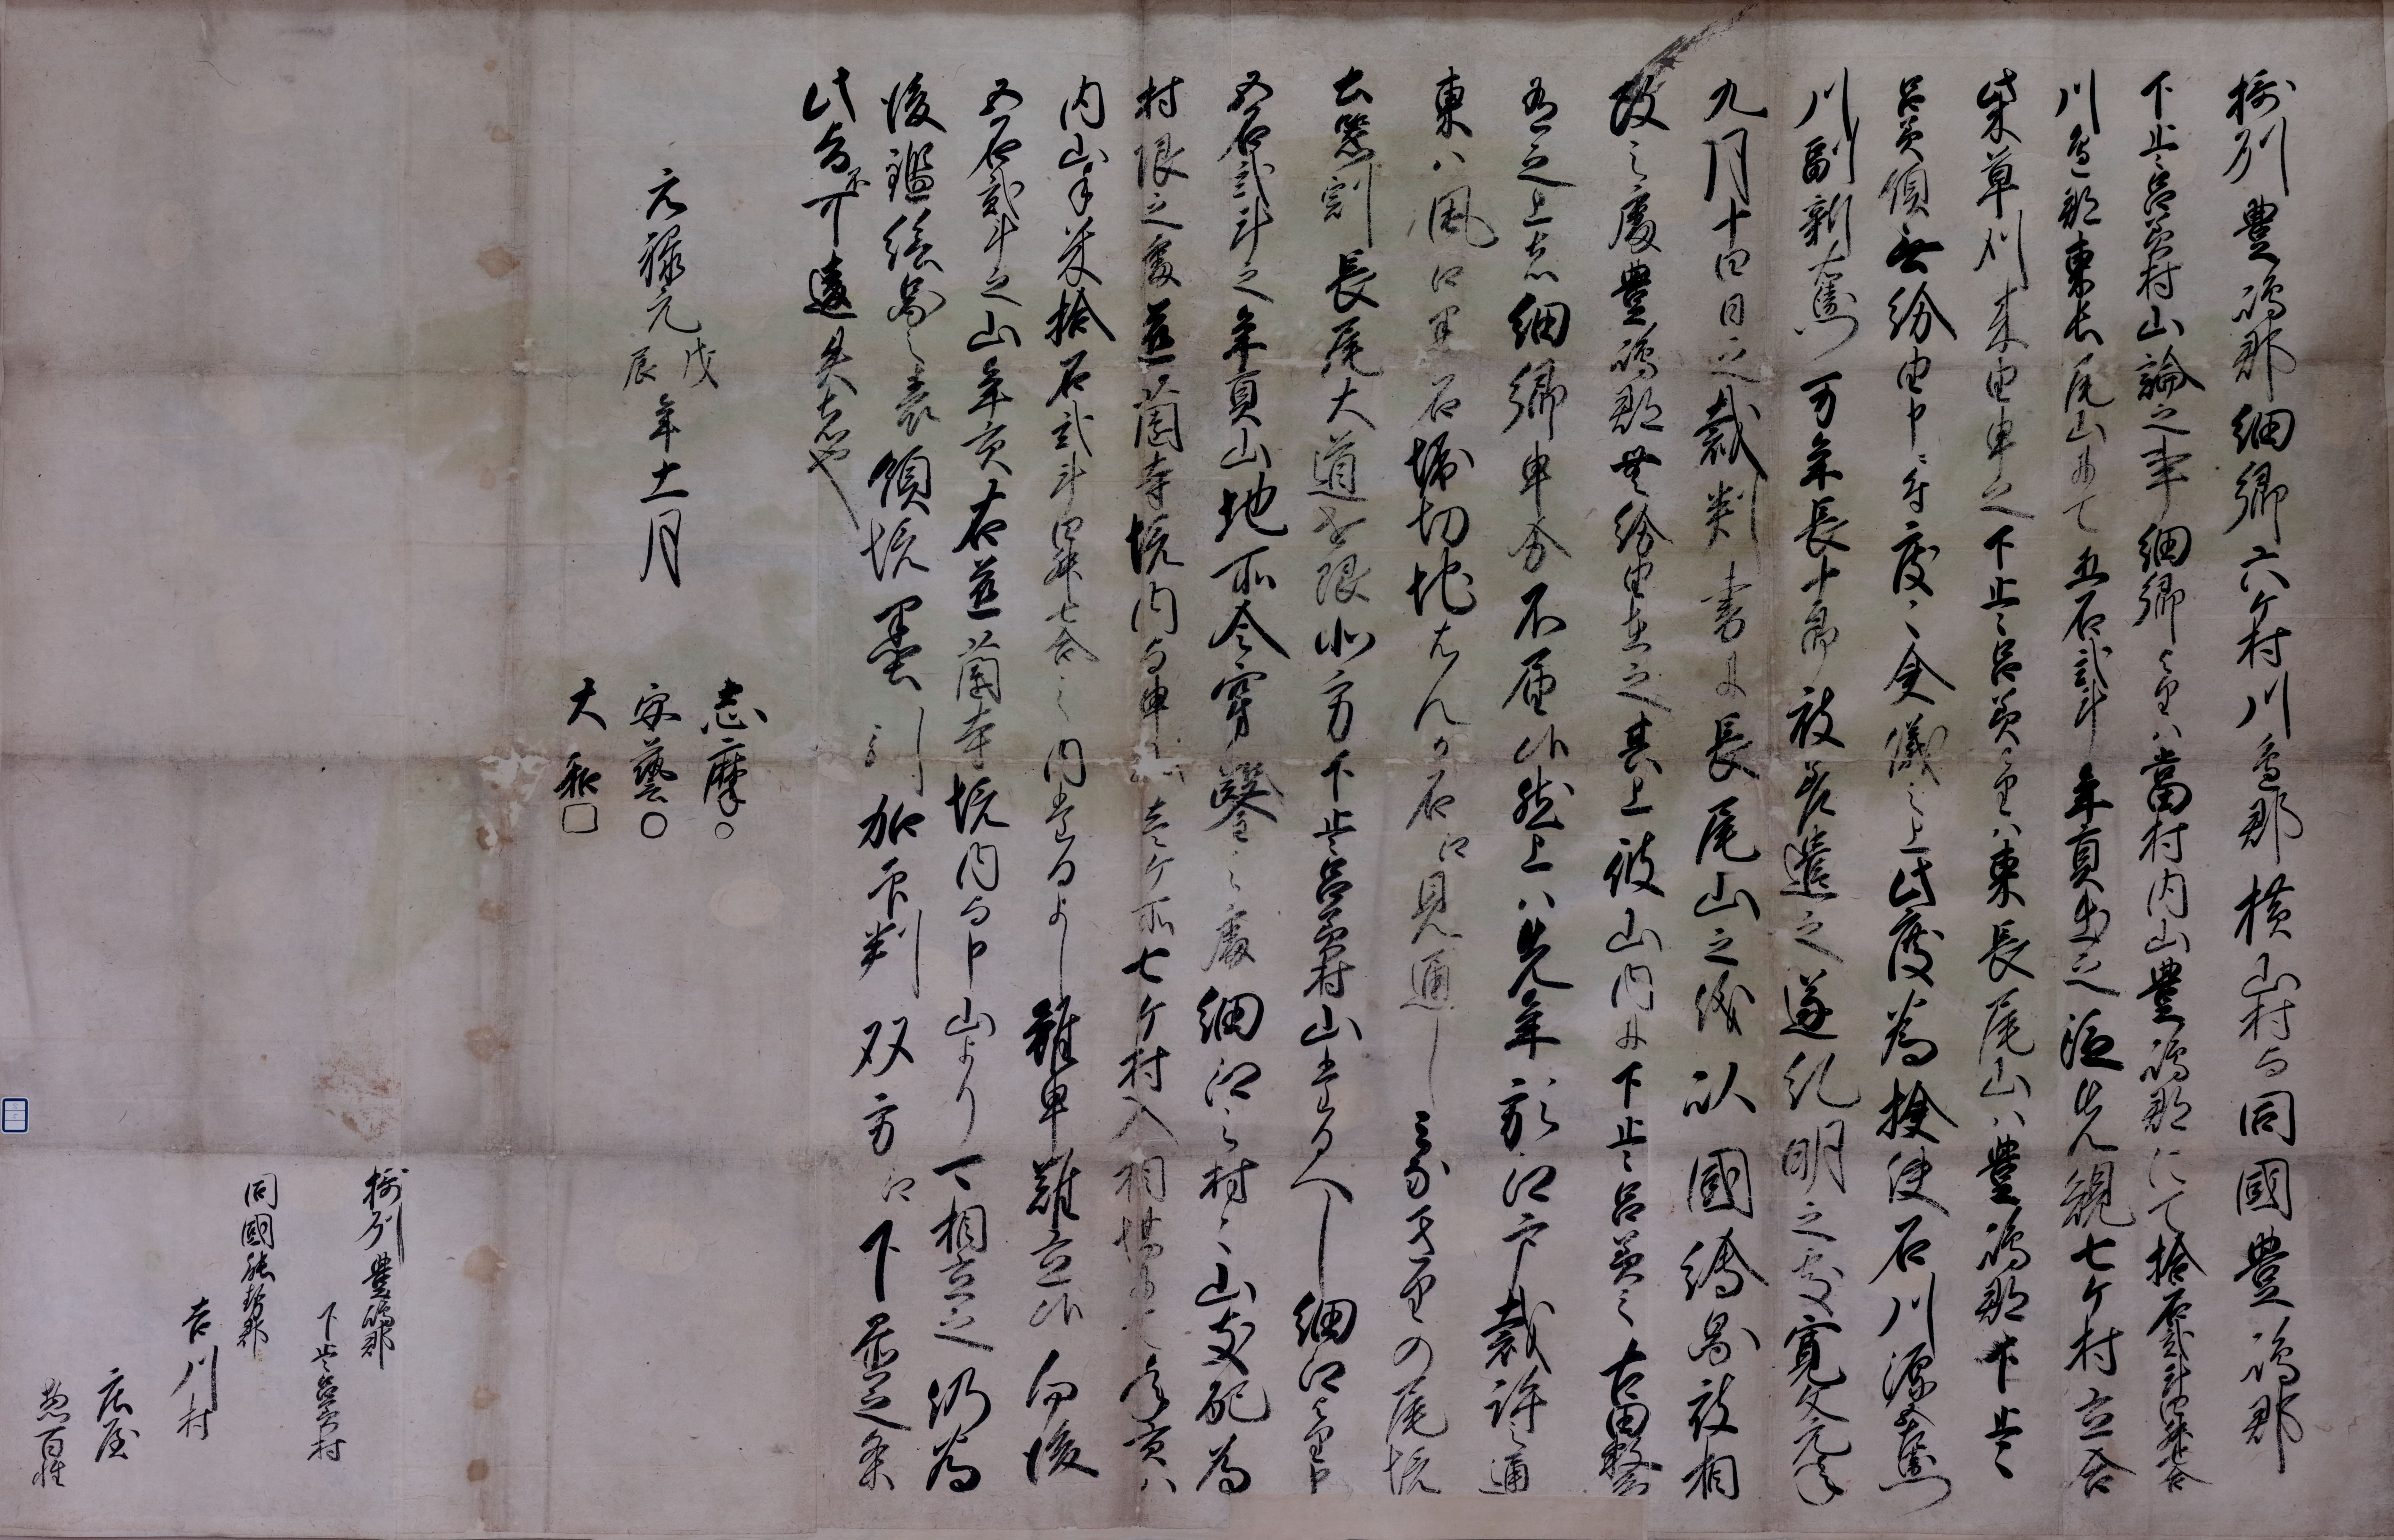 摂州豊嶋郡細郷六ケ村川邊郡横山村与同國豊嶋郡
下止々呂美村山論之事細郷より者ハ當村内山豊嶋郡にて拾石貳斗四舛七合
川邊郡東長尾山ニ而五石貳斗年貢出之従先規七ケ村立合
柴草刈来由申之下止々呂美より者ハ東長尾山ハ豊嶋郡下止々
呂美領無紛由申ニ付度々会儀之上此度為撿使石川源五左衛門
川副新右衛門万年長十郎被差遣之遂糺明之処寛文元年
九月十四日之裁判書ニ長尾山之儀以國繪図被相
改之處豊嶋郡無紛由在之其上彼山内ニ下止々呂美之古田数
有之上者細郷申分不届候然上ハ先年於江戸裁許之通
東ハ風口黒石堀切地しんか石江見通し之尾境
長尾大道を限北方下止々呂美村山たるへし細江より出
五石貳斗之年貢山地所令穿鑿之處細江之村々山支配為
村限之處並蘭寺境内与申 壱ケ所七ケ村入相 年貢ハ
内山手米拾石貳斗四舛七合之内たるよし雖申難立候向後
五石貳斗之山年貢右並蘭寺境内与申山より可相立之仍為
後鑑繪図之表領境墨引加印判双方江下置之条
此旨不可違失者也
元禄元戊辰年十一月
志摩○
安藝○
大和□
摂州豊嶋郡
下止々呂美村
同國能勢郡
吉川村
庄屋
惣百姓